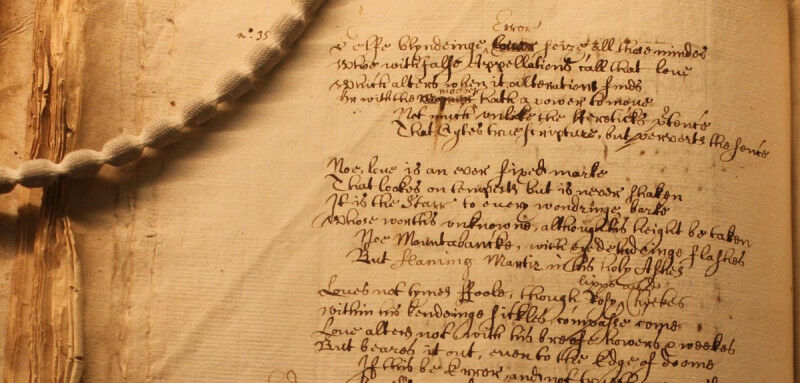 n: 35
Error
Selfe blyndeinge seize all those mindes
Whoe with false Appellations call that love
Which alters when it alterations finds
mover
Or with the hath a power to move
Not much unlike the Hereticks ptence
That Cytes true scripture, but perverts the sence
Noe, love is an ever fixed marke
That lookes on tempests but is never shaken
It is the Starr to every wondringe barke
Whose worths unknowne, although his height be taken
Noe Mountabancke, with eye deludeinge flashes
But flaming Martir in his holy Ashes
lipps and
Loves not tymes Foole, though Rosy Cheekes
within his bendeinge sickles, compasse come
Love alters not with his breife howers & weekes
But beares it out, even to the Edge of doome
If this be Error, and not